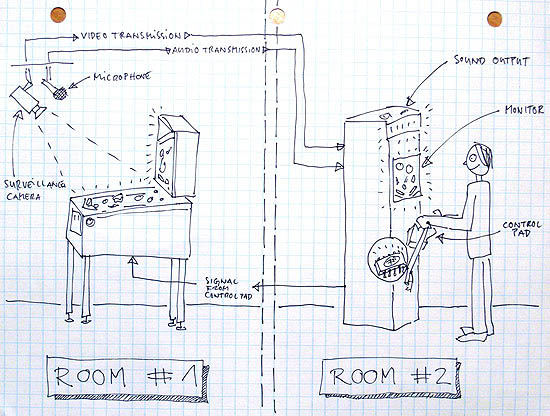 VIDEO TRANSMISSION
AUDIO TRANSMISSION
MICROPHONE
SURVEILLANCE
CAMERA
SOUND OUTPUT
MONITOR
CONTROL
PAD
SIGNAL
FROM
CONTROL PAD
ROOM #1
ROOM #2